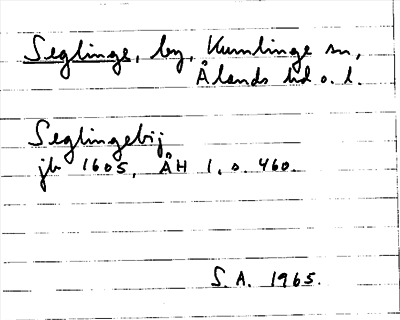 Seglinge, by, Kumlinge sn,
Ålands hd o. l.
Seglingebij
jb 1605, ÅH 1, s. 460.
S. A. 1965.